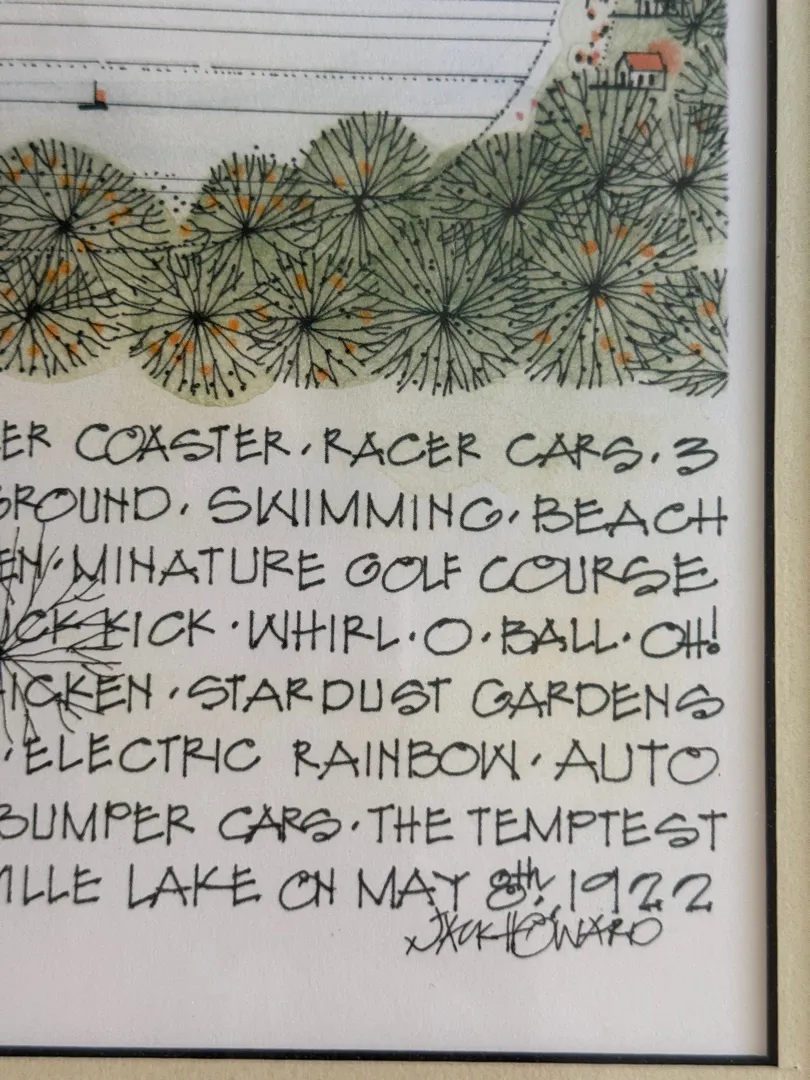 ER COASTER · RACER CARS · 3
GROUND · SWIMMING · BEACH
EN · MINATURE GOLF COURSE
ICK KICK · WHIRL · O · BALL · OH!
ICKEN · STARDUST GARDENS
· ELECTRIC RAINBOW · AUTO
BUMPER CARS · THE TEMPTEST
VILLE LAKE ON MAY 8th, 1922
JACK HOWARD